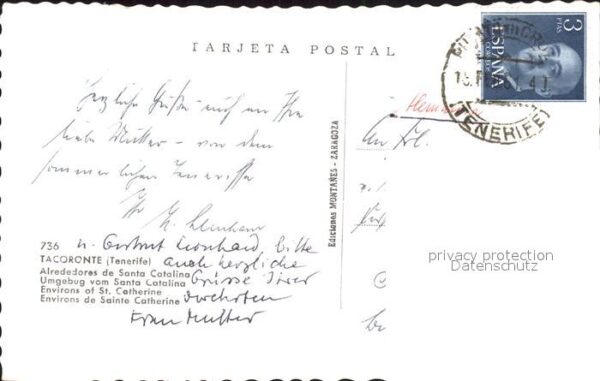 TARJETA POSTAL
3
PTAS
ESPAÑA
CORREOS
(TENERIFE)
Herzliche Grüße auch an Ihre
liebe Mutter – von dem
sommerlichen Teneriffa
Ihr
An Frl.
736 u. Leonhard, bitte
TACORONTE (Tenerife) auch herzliche
Alrededores de Santa Catalina Grüsse Ihrer
Umgebug vom Santa Catalina
Environs of St. Catherine
Environs de Sainte Catherine
Frau Mutter
Ediciones MONTAÑES - ZARAGOZA
privacy protection
Datenschutz